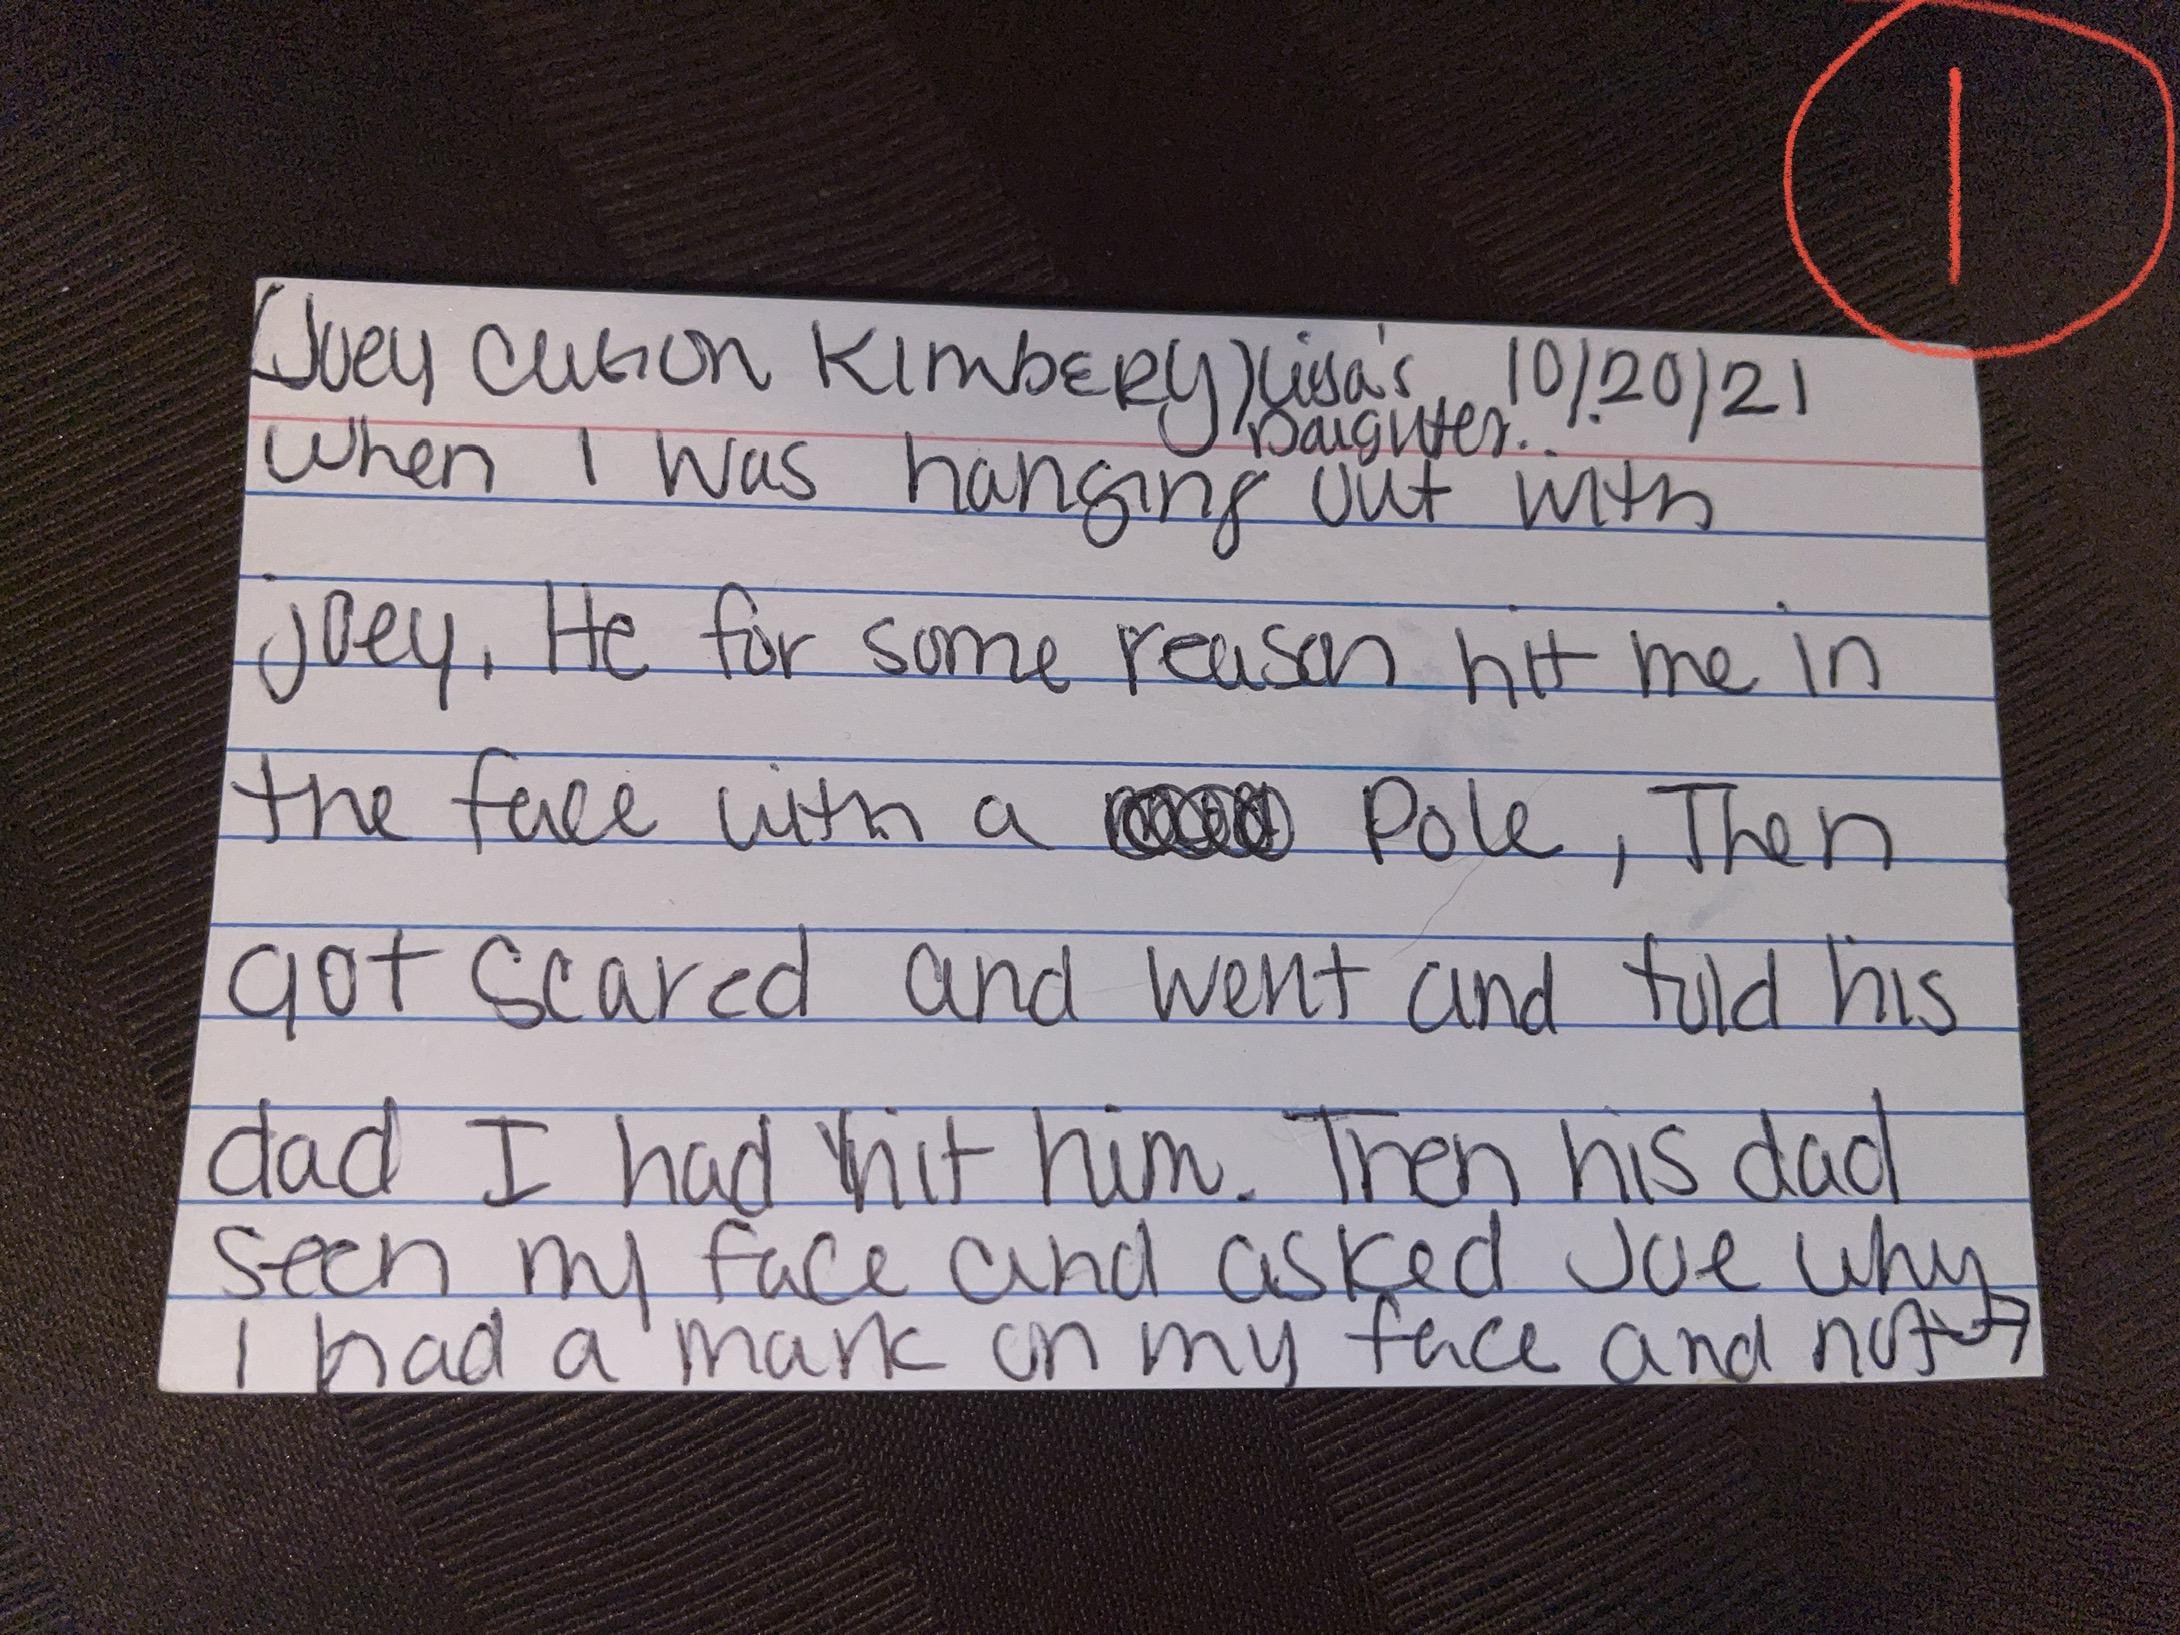 1
(Joey Cuson KImbERy) Lisa's 10/20/21
Daughter.
When I was hanging out with
joey. He for some reason hit me in
the face with a Pole, Then
got scared and went and told his
dad I had hit him. Then his dad
seen my face and asked Joe why
I had a mark on my face and not